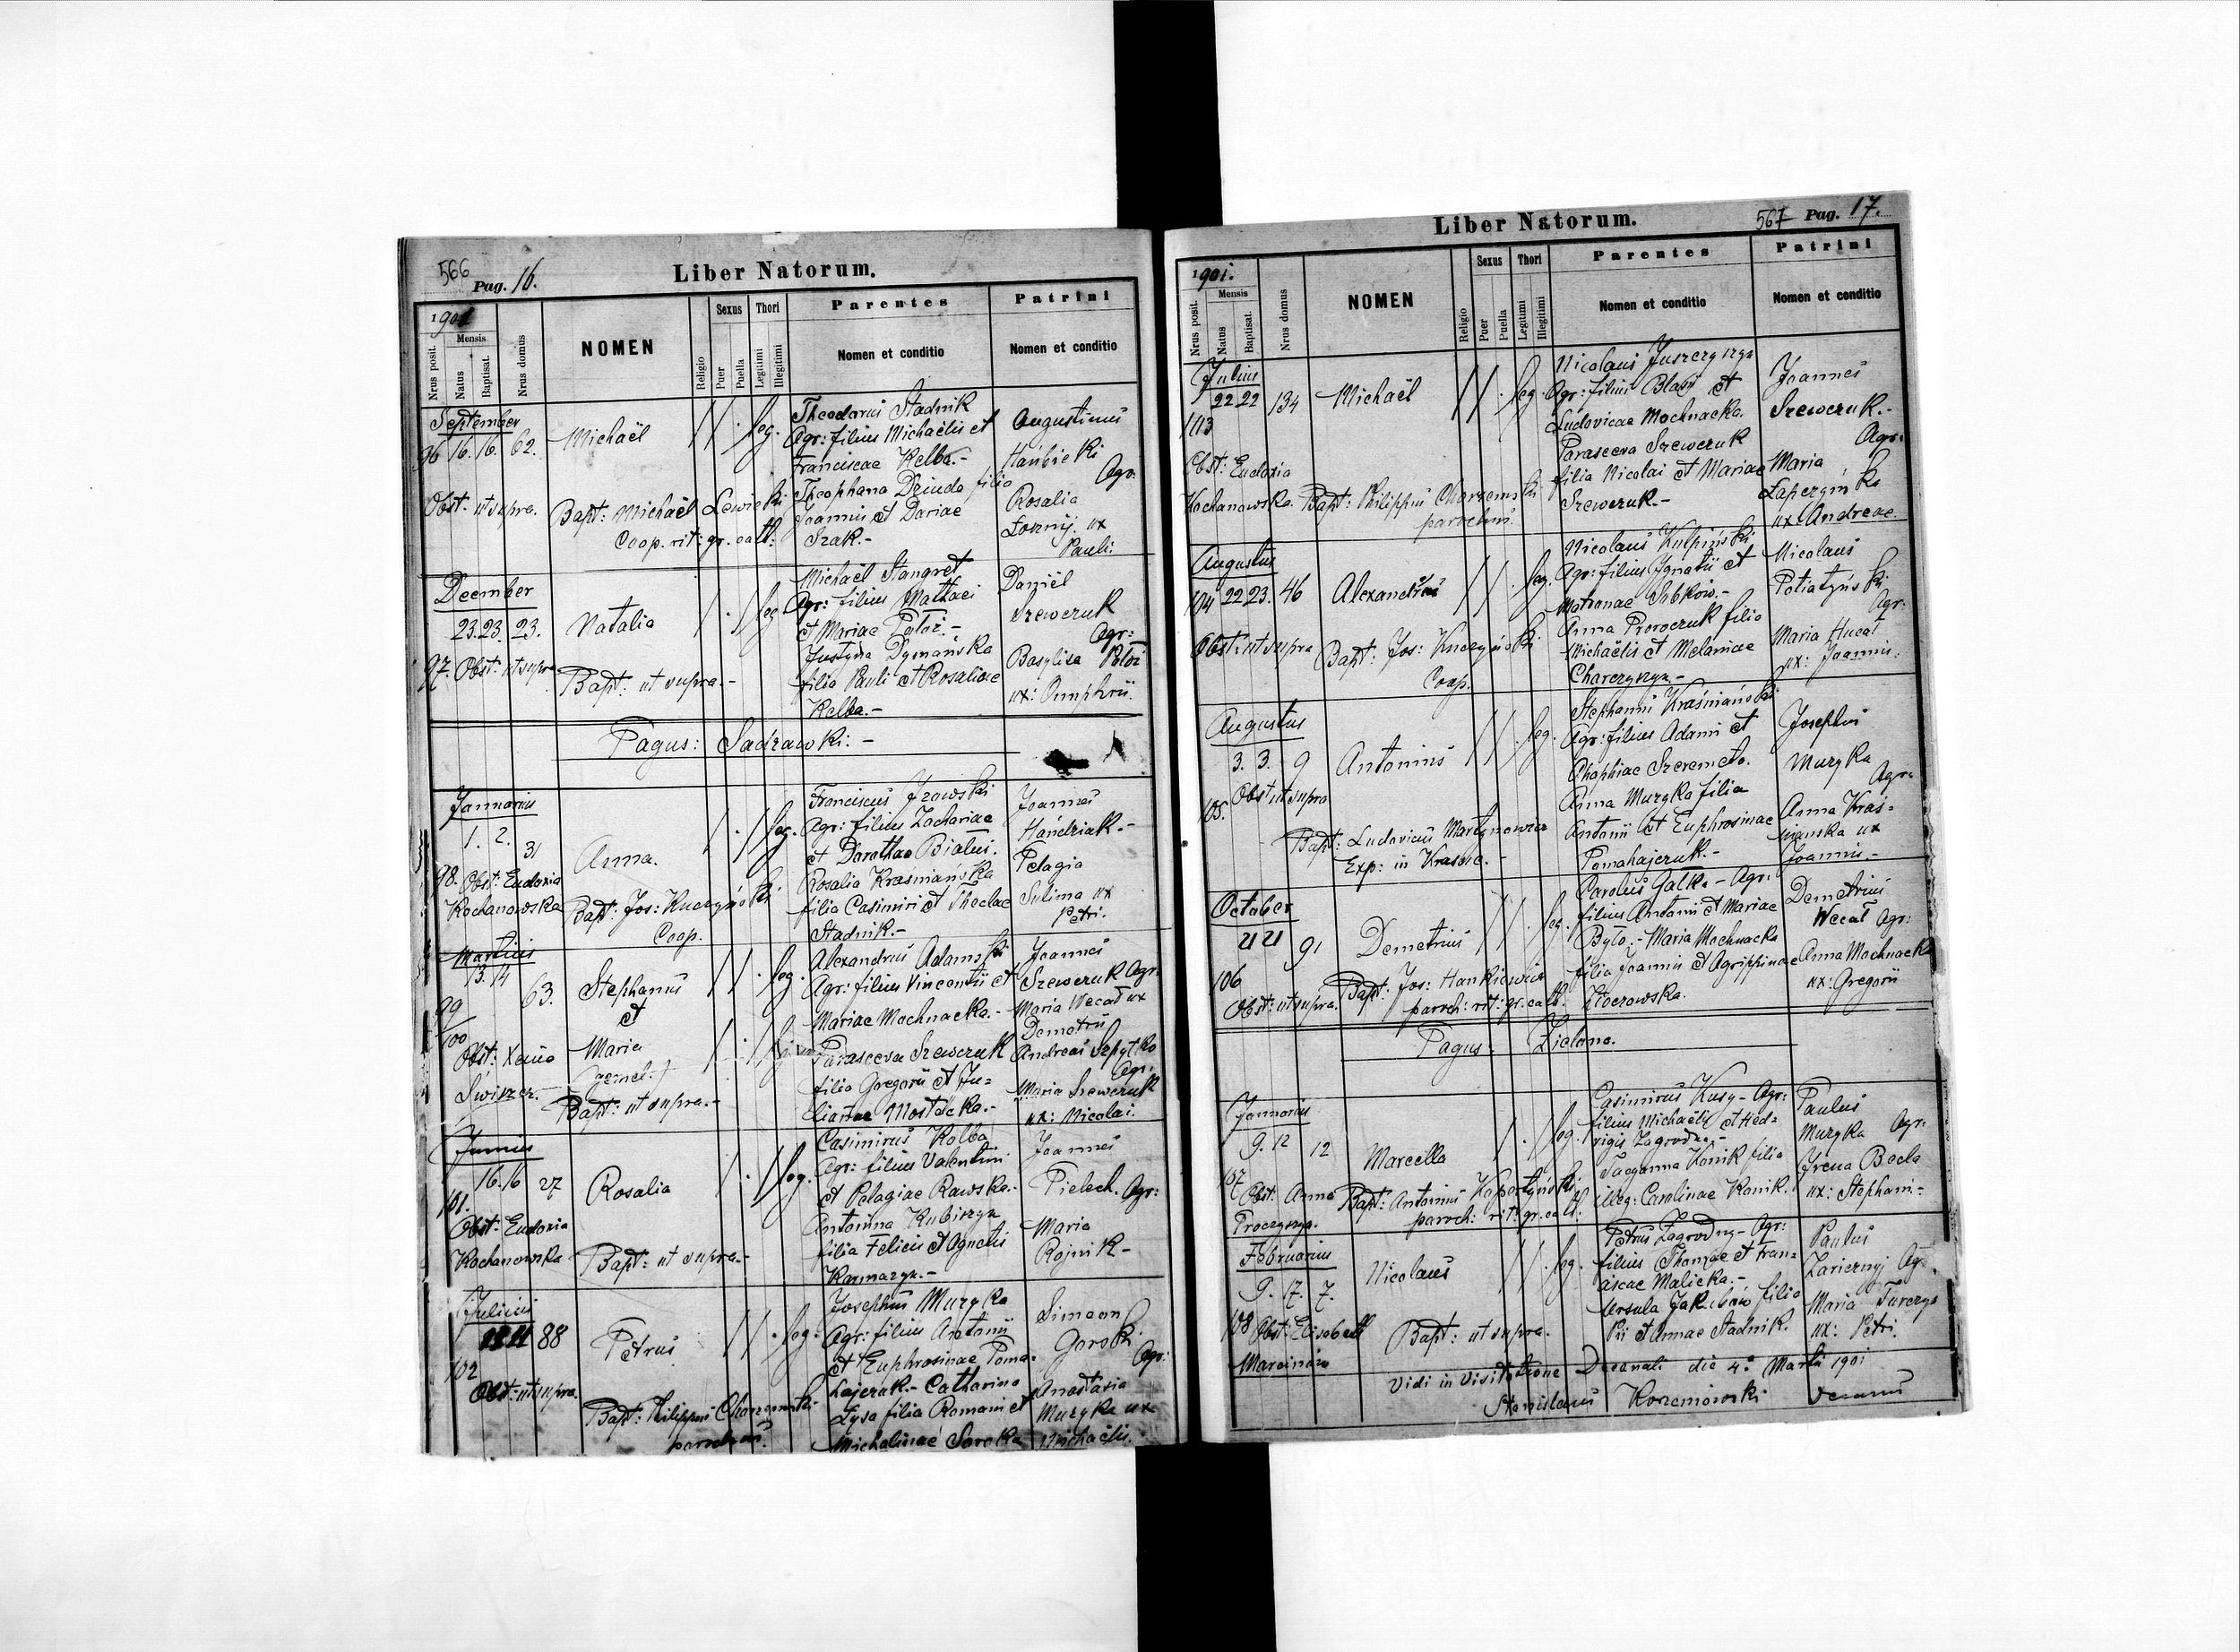 566 Pag. 16.
Liber Natorum.
1901
Nrus posit.
Mensis
Natus
Baptisat.
Nrus domus
NOMEN
Religio
Sexus
Puer
Puella
Thori
Legitimi
Illegitimi
Parentes
Nomen et conditio
Patrini
Nomen et conditio
September
96 16. 16. 62. Michaël leg.
Obst. ut supra. Bapt: Michaël Lewicki
Coop. rit: gr. cath:
Theodorus Stadnik
Agr: filius Michaëlis et
Franciscae Kelba.-
Theophana Dziuda filia
Joannis et Dariae
Szak.-
Augustinus
Hańbicki
Agr.
Rosalia
ux
Pauli.
December
23. 23. 23. Natalia leg
97. Obst: ut supra Bapt: ut supra.-
Michaël Stangret
Agr: filius Mathaei
et Mariae Patoż.-
Justyna Dymańska
filia Pauli et Rosaliae
Kelba.-
Daniël
Szewczuk
Agr:
Basylisa
ux: Onuphrii.
Pagus: Sadzawki.-
Januarius
1. 2. 31 Anna. leg.
98. Obst: Eudoxia
Kochanowska Bapt: Jos: Kuczyński
Coop.
Franciscus Jzowski
Agr: filius Zachariae
et Dorotheae Bialui.
Rosalia Kraśniańska
filia Casimiri et Theclae
Stadnik.-
Joannes
Hańdziak.-
Pelagia
Sulima ux
Petri.
Martius
13. 14 63. Stephanus leg.
99 et
100 Maria
Obst: Xenia (gemel.)
Świszcz. Bapt: ut supra.-
Alexandrus Adamski
Agr: filius Vincentii et
Mariae Mochnacka.-
Parasceva Szewczuk
filia Gregorii et Ju=
liannae Mostacka.-
Joannes
Szewczuk Agr.
Maria Wecał ux
Demetrii
Andreas Szpytko
Agr.
Maria Szewczuk
ux: Nicolai.
Junius
16. 16 27 Rosalia leg.
101.
Obst: Eudoxia
Kochanowska Bapt: ut supra.-
Casimirus Kolba
Agr: filius Valentini
et Pelagiae Rawska.-
Antonina Kubiszyn
filia Felicis et Agnetis
Karmazyn.-
Joannes
Pielech. Agr:
Maria
Rojnik-
Julius
88 Petrus leg.
102
Obst: ut supra.
Bapt: Philippus Charzewski
parochus.
Josephus Muzyka
Agr: filius Antonii
et Euphrosinae Poma=
hajczuk.- Catharina
Lysa filia Romani et
Michalinae Soroka
Simeon
Gorski
Agr:
Anastasia
Muzyka ux
Michaëlis.
Liber Natorum.
567 Pag. 17.
1901.
Nrus posit.
Mensis
Natus
Baptisat.
Nrus domus
NOMEN
Religio
Sexus
Puer
Puella
Thori
Legitimi
Illegitimi
Parentes
Nomen et conditio
Patrini
Nomen et conditio
Julius
22 22 134 Michaël leg
103
Obst: Eudoxia
Kochanowska. Bapt: Philippus Charzewski
parochus.
Nicolaus Juszczyszyn
Agr: filius Blasii et
Ludovicae Mochnacka.
Parasceva Szewczuk
filia Nicolai et Mariae
Szewczuk.-
Joannes
Szewczuk.-
Agr:
Maria
Łapczyńska
ux: Andreae.
Augustus
104 22 23. 46 Alexandrus leg.
Obst: ut supra Bapt: Jos: Kuczyński
Coop.
Nicolaus Kulpiński
Agr: filius Ignatii et
Matronae Srbkow.-
Anna Proroczuk filia
Michaëlis et Melaniae
Charczyszyn.-
Nicolaus
Potiatyński
Agr:
Maria Hucał
ux: Joannis.
Augustus
3. 3. 9 Antonius leg.
105. Obst ut supra
Bapt: Ludovicus Martynowicz
Exp: in Krasne.-
Stephanus Kraśniański
Agr: filius Adami et
Ohophiae Szeremeto.
Anna Muzyka filia
Antonii et Euphrosinae
Pomahajczuk.-
Josephus
Muzyka
Agr:
Anna Kraś=
niańska ux
Joannis.-
October
21 21 91 Demetrius leg.
106
Obst: ut supra. Bapt: Jos: Hankiewicz
paroch: rit: gr. cath.
Carolus Galka - Agr:
filius Antonii et Mariae
Byto.- Maria Mochnacka
filia Joannis et Agrippinae
Złoczowska.
Demetrius
Wecał Agr:
Anna Mochnacka
ux: Gregorii
Pagus: Zielona.
Januarius
9. 12 12 Marcella leg.
107
Obst: Anna
Proczyszyn. Bapt: Antonius Kopertyński
paroch: rit: gr. cath.
Casimirus Kusy - Agr:
filius Michaëlis et Hed=
vigis Zagrodna.-
Taeyanna Konik filia
illeg: Carolinae Konik.
Paulus
Muzyka Agr.
Irena Becla
ux: Stephani.-
Februarius
9. 17. 7. Nicolaus leg.
108 Obst: Elisabeth
Marciniów Bapt: ut supra.
Petrus Zagrodny - Agr:
filius Thomae et Fran=
ciscae Malicka.-
Ursula Jakubów filia
Pii et Annae Stadnik.
Paulus
Zariczny Agr.
Maria Turczyn
ux: Petri.
Vidi in visitatione Decanali die 4a Martii 1901
Stanislaus Korzeniowski Decanus